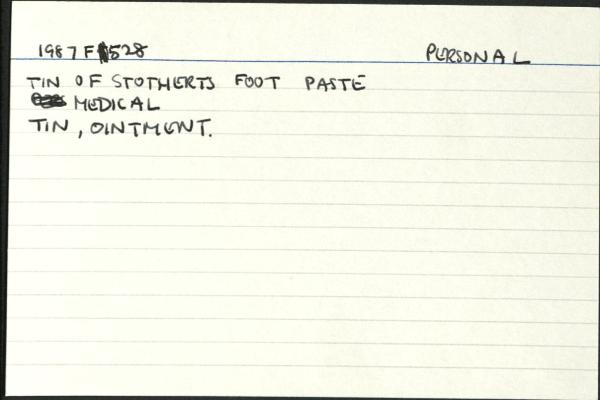 1987 F 1528 PERSONAL
TIN OF STOTHERTS FOOT PASTE
MEDICAL
TIN, OINTMENT.